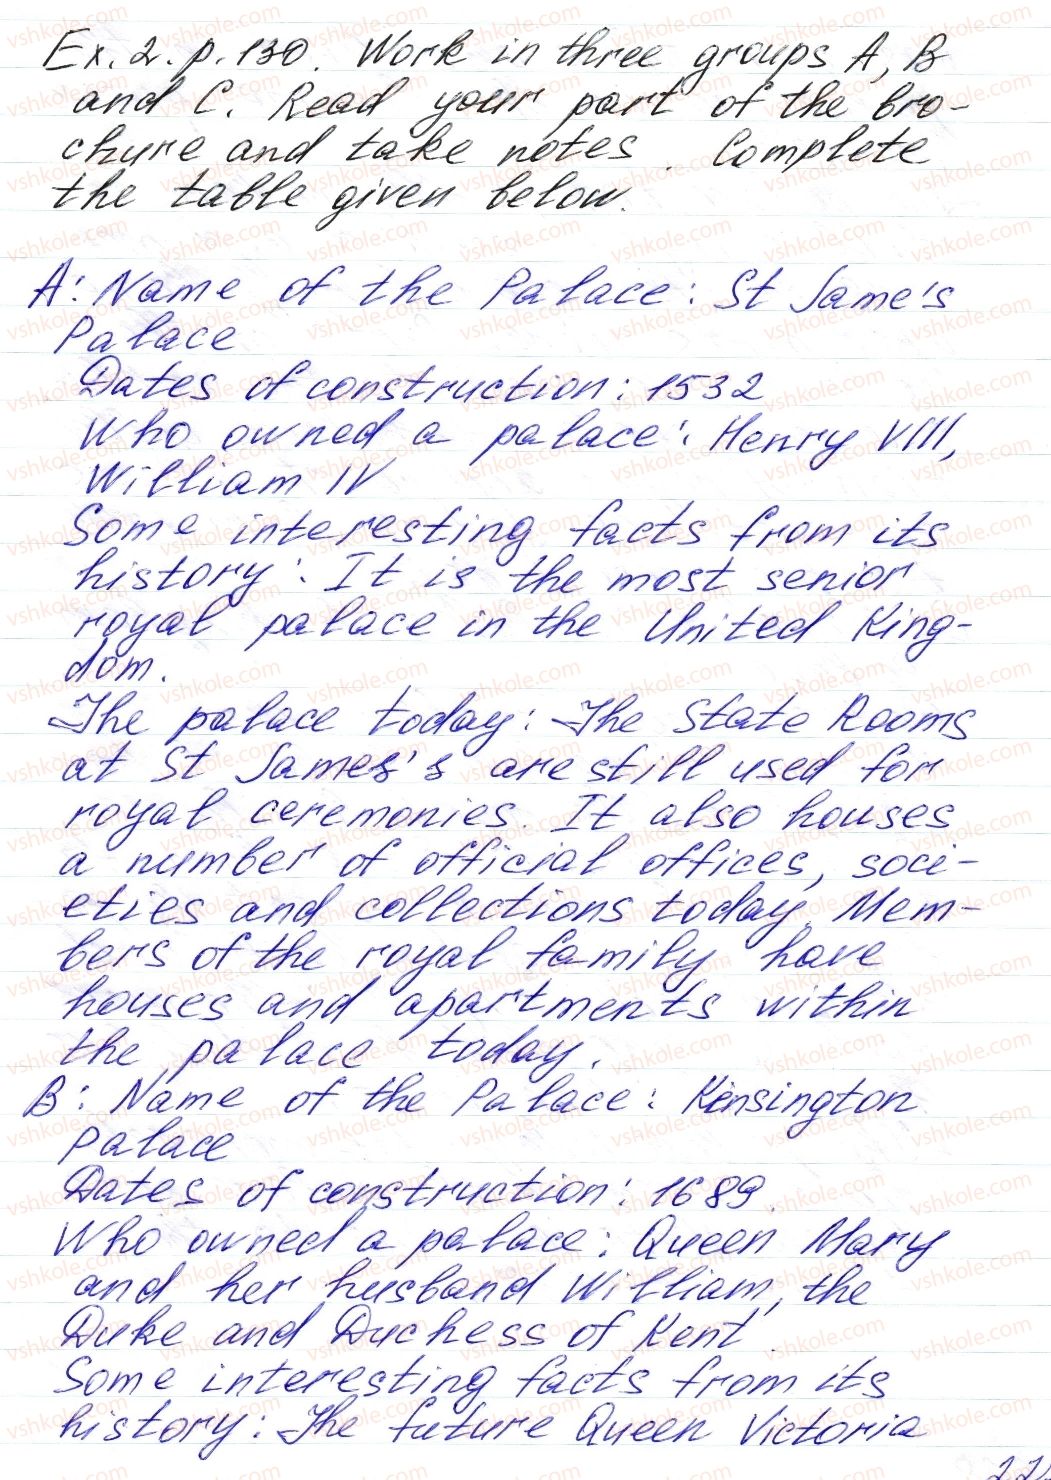 Ex. 2. p. 130. Work in three groups A, B
and C. Read your part of the bro-
chure and take notes. Complete
the table given below.
A: Name of the Palace: St Jame's
Palace
Dates of construction: 1532
Who owned a palace: Henry VIII,
William IV
Some interesting facts from its
history: It is the most senior
royal palace in the United King-
dom.
The palace today: The State Rooms
at St James's are still used for
royal ceremonies. It also houses
a number of official offices, soci-
eties and collections today. Mem-
bers of the royal family have
houses and apartments within
the palace today.
B: Name of the Palace: Kensington
Palace
Dates of construction: 1689.
Who owned a palace: Queen Mary
and her husband William, the
Duke and Duchess of Kent.
Some interesting facts from its
history: The future Queen Victoria